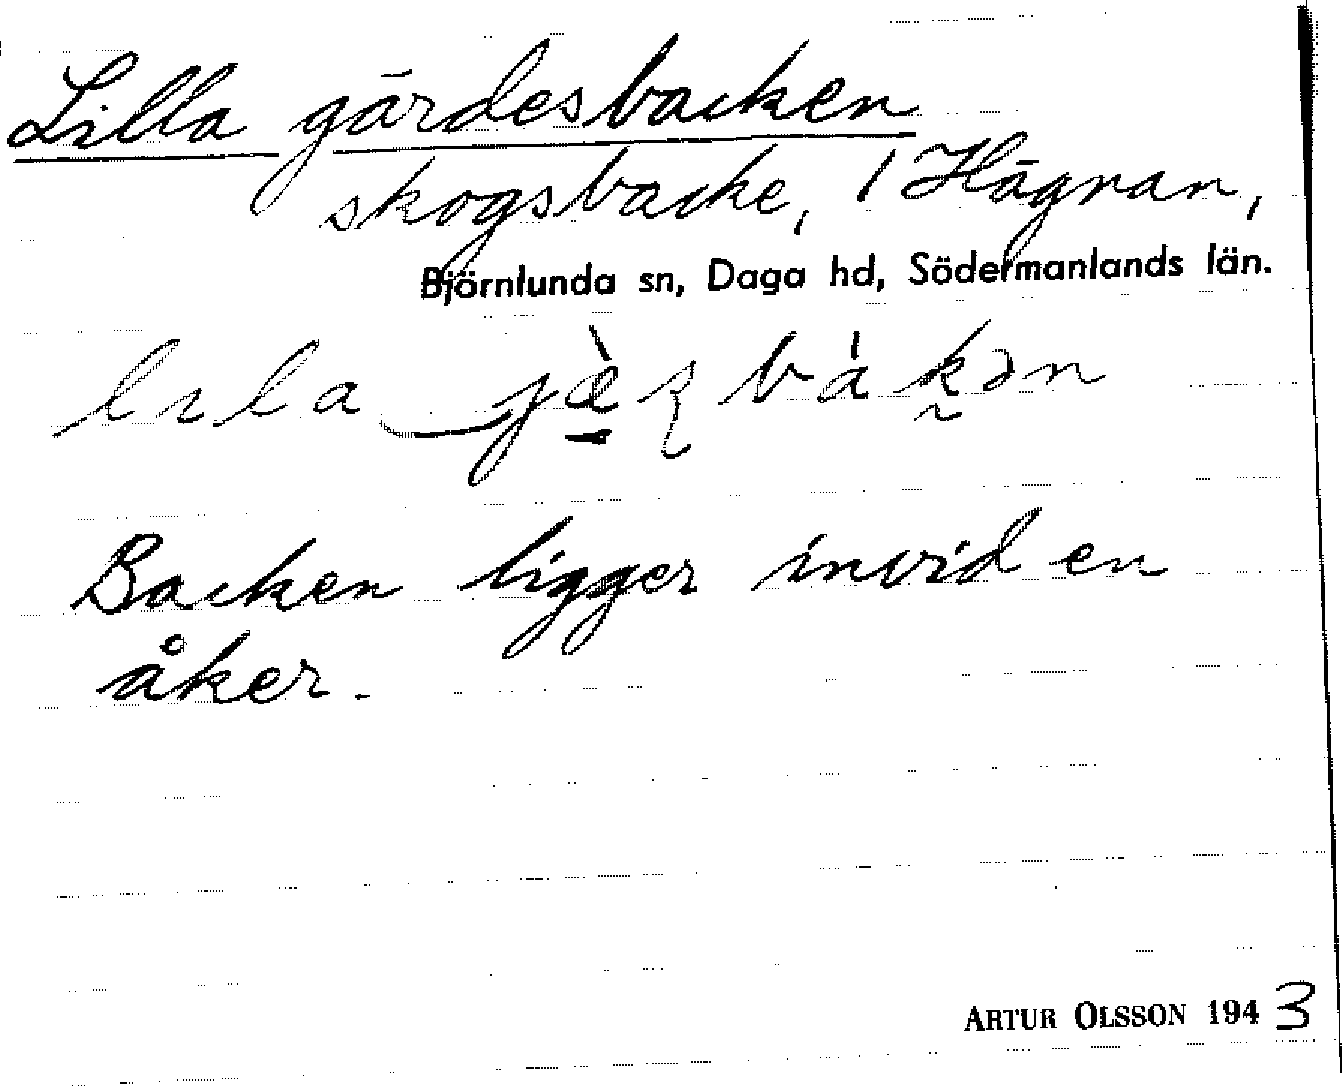 Lilla gärdesbacken
skogsbacke, / Hägnan,
Björnlunda sn, Daga hd, Södermanlands län.
Backen ligger invid en
åker.
ARTUR OLSSON 1943